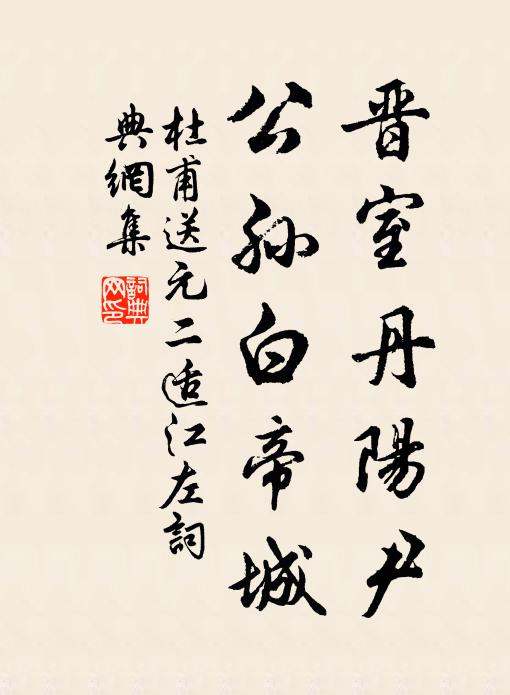 晋室丹陽尹
公孙白帝城
杜甫送元二适江左詞
典網集
詞典
网印